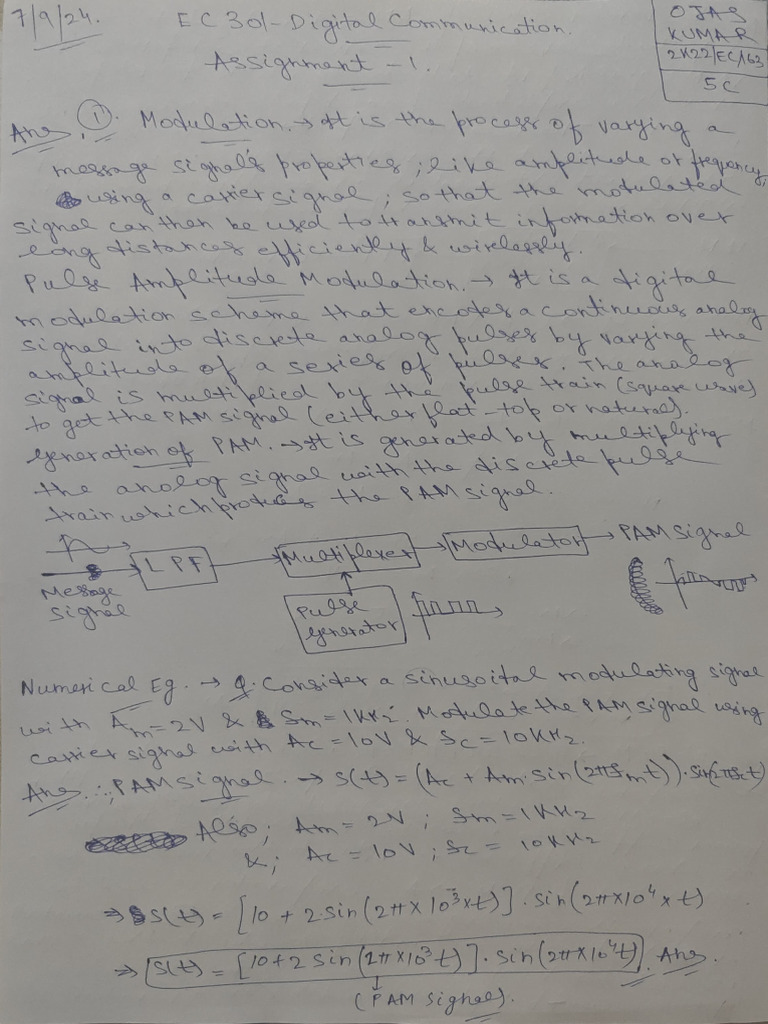 7/9/24.
EC301-Digital Communication.
Assignment-1.
OJAS
KUMAR
2K22/EC/163
5C
Ans, ①. Modulation. → It is the process of varying a
message signal's properties, like amplitude or frequency,
using a carrier signal, so that the modulated
signal can then be used to transmit information over
long distances efficiently & wirelessly.
Pulse Amplitude Modulation. → It is a digital
modulation scheme that encodes a continuous analog
signal into discrete analog pulses by varying the
amplitude of a series of pulses. The analog
signal is multiplied by the pulse train (square wave)
to get the PAM signal (either flat-top or natural).
Generation of PAM. → It is generated by multiplying
the analog signal with the discrete pulse
train which produces the PAM signal.
Message
Signal
LPF
Multiplexer
Modulator
PAM signal
Pulse
Generator
Numerical Eg. → Q. Consider a sinusoital modulating signal
with Am=2V & fm=1KHz. Modulate the PAM signal using
carrier signal with Ac=10V & fc=10KHz.
Ans ∴ PAM signal. → s(t) = (Ac + Am.sin(2πfmt)).sin(2πfct)
Also; Am = 2V ; fm = 1KHz
&; Ac = 10V ; fc = 10KHz
⇒ s(t) = [10 + 2.sin(2π×10³×t)] . sin(2π×10⁴×t)
⇒ s(t) = [10+2 sin(2π×10³t)] . sin(2π×10⁴t) . Ans.
(PAM signal).